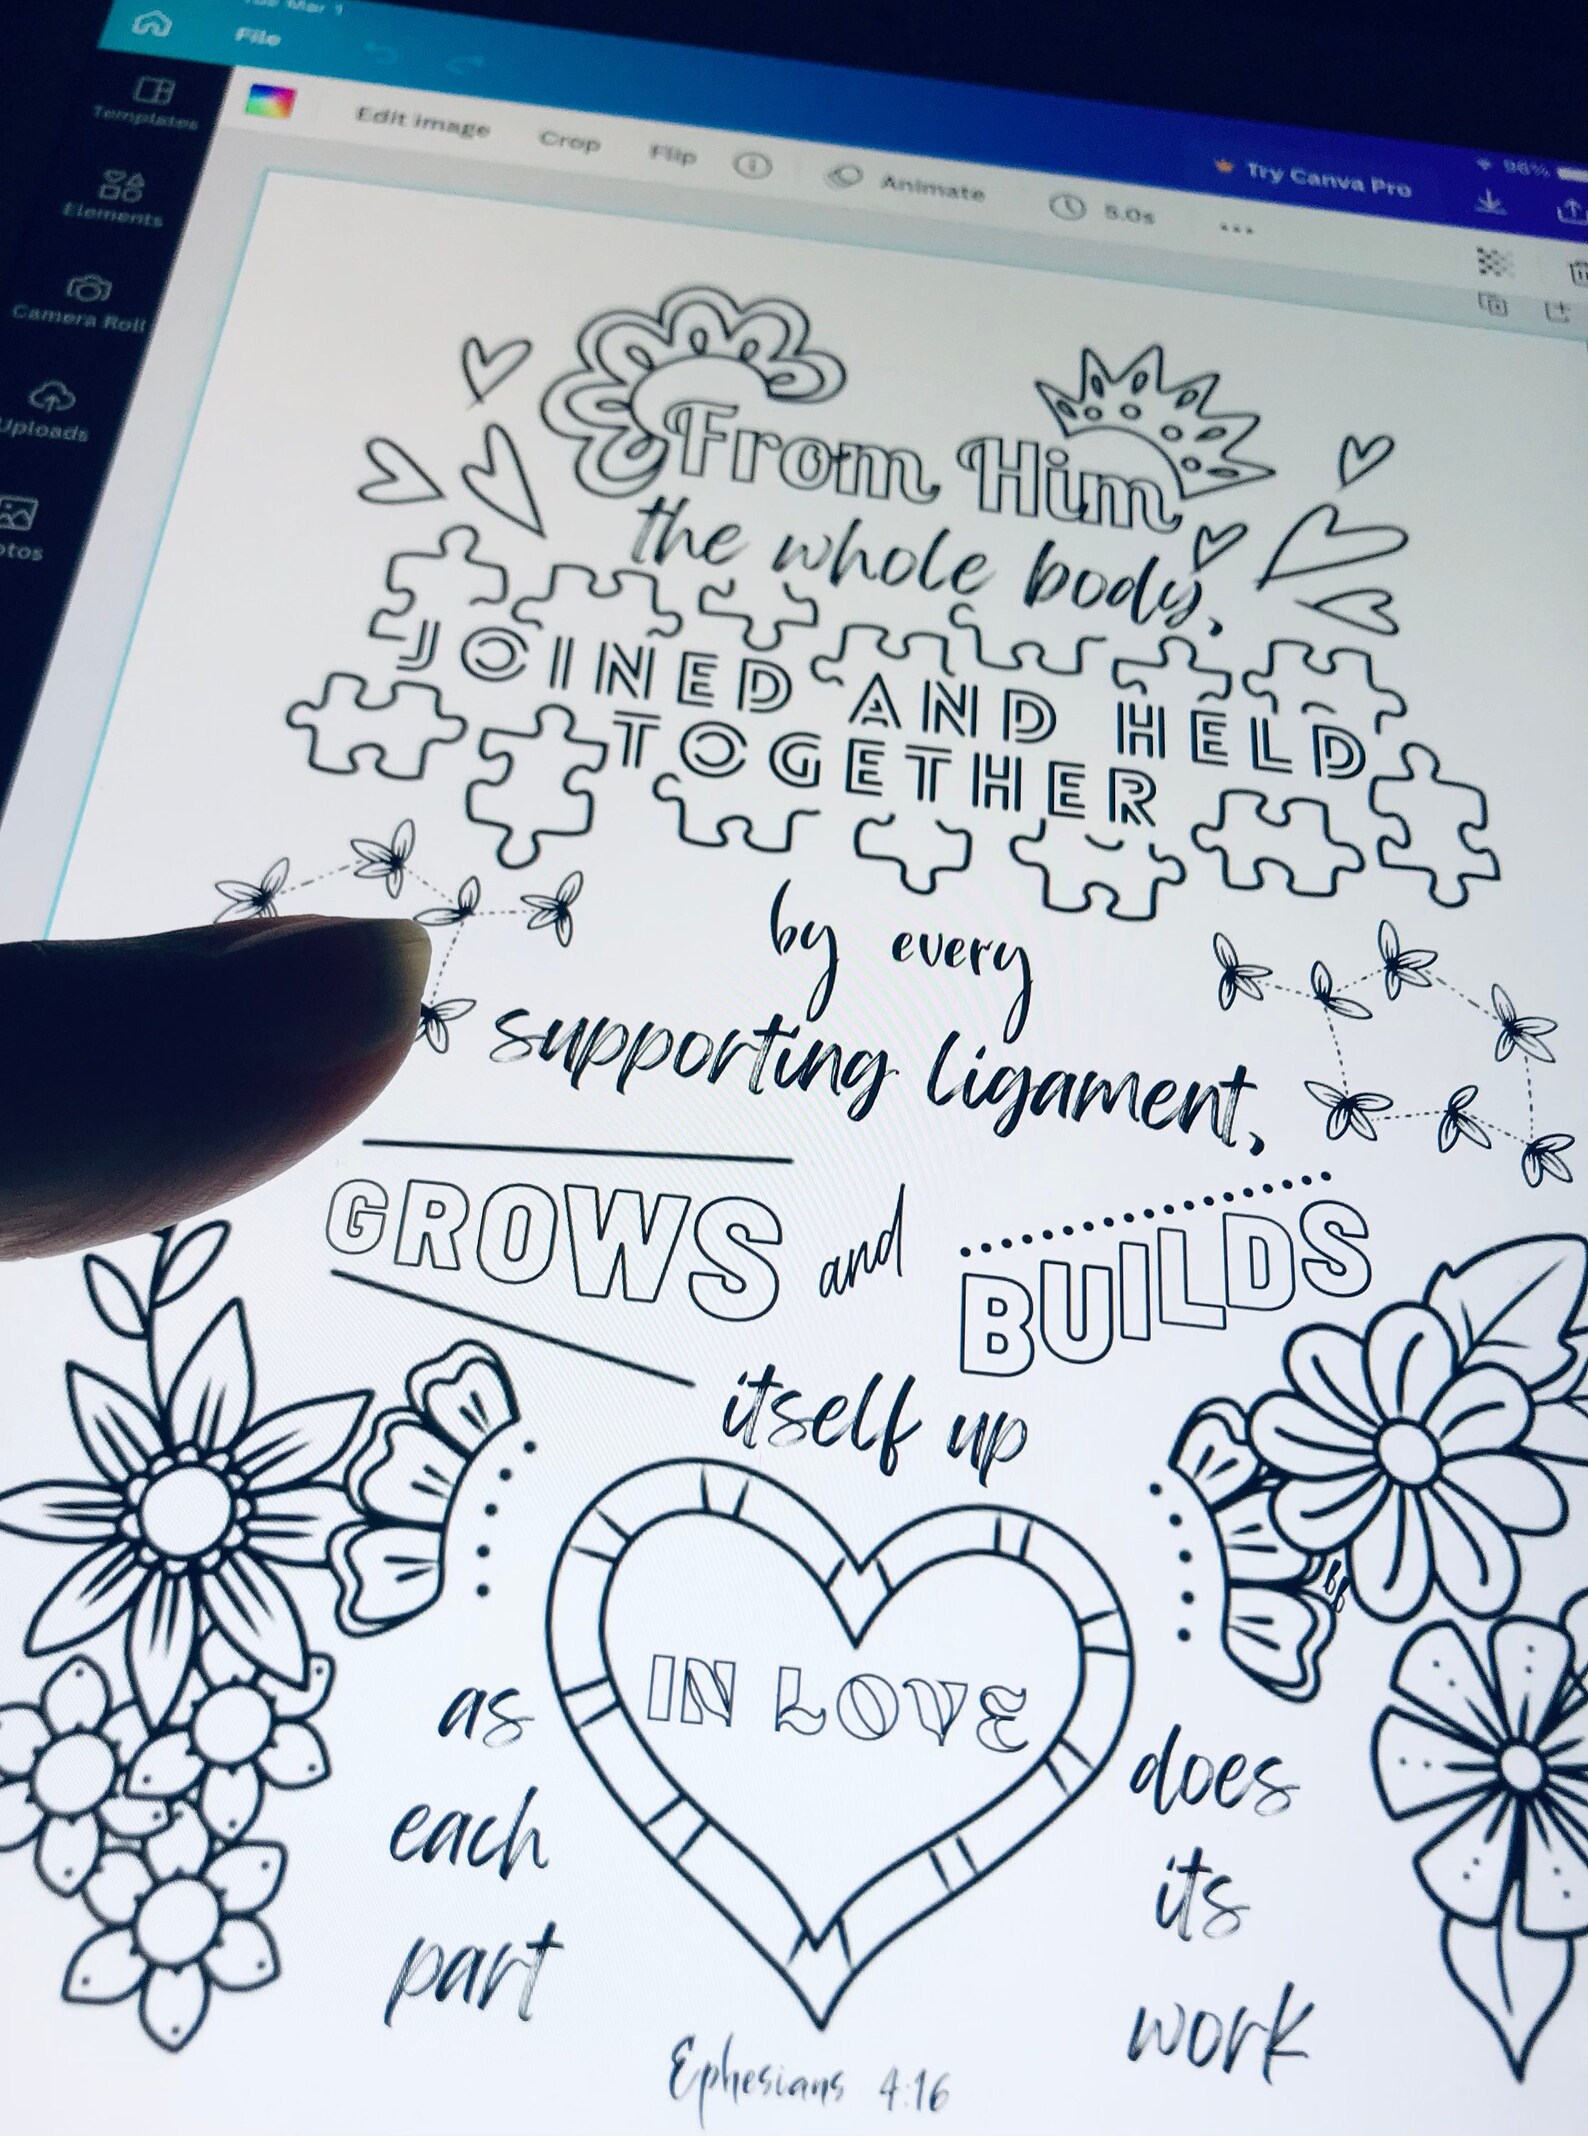 Tue Mar 1
File
Templates
Edit image Crop Flip Animate 5.0s ...
Try Canva Pro
96%
Elements
Camera Roll
Uploads
otos
From Him
the whole body,
JOINED AND HELD
TOGETHER
by every
supporting ligament,
GROWS and BUILDS
itself up
IN LOVE
as
each
part
does
its
work
Ephesians 4:16